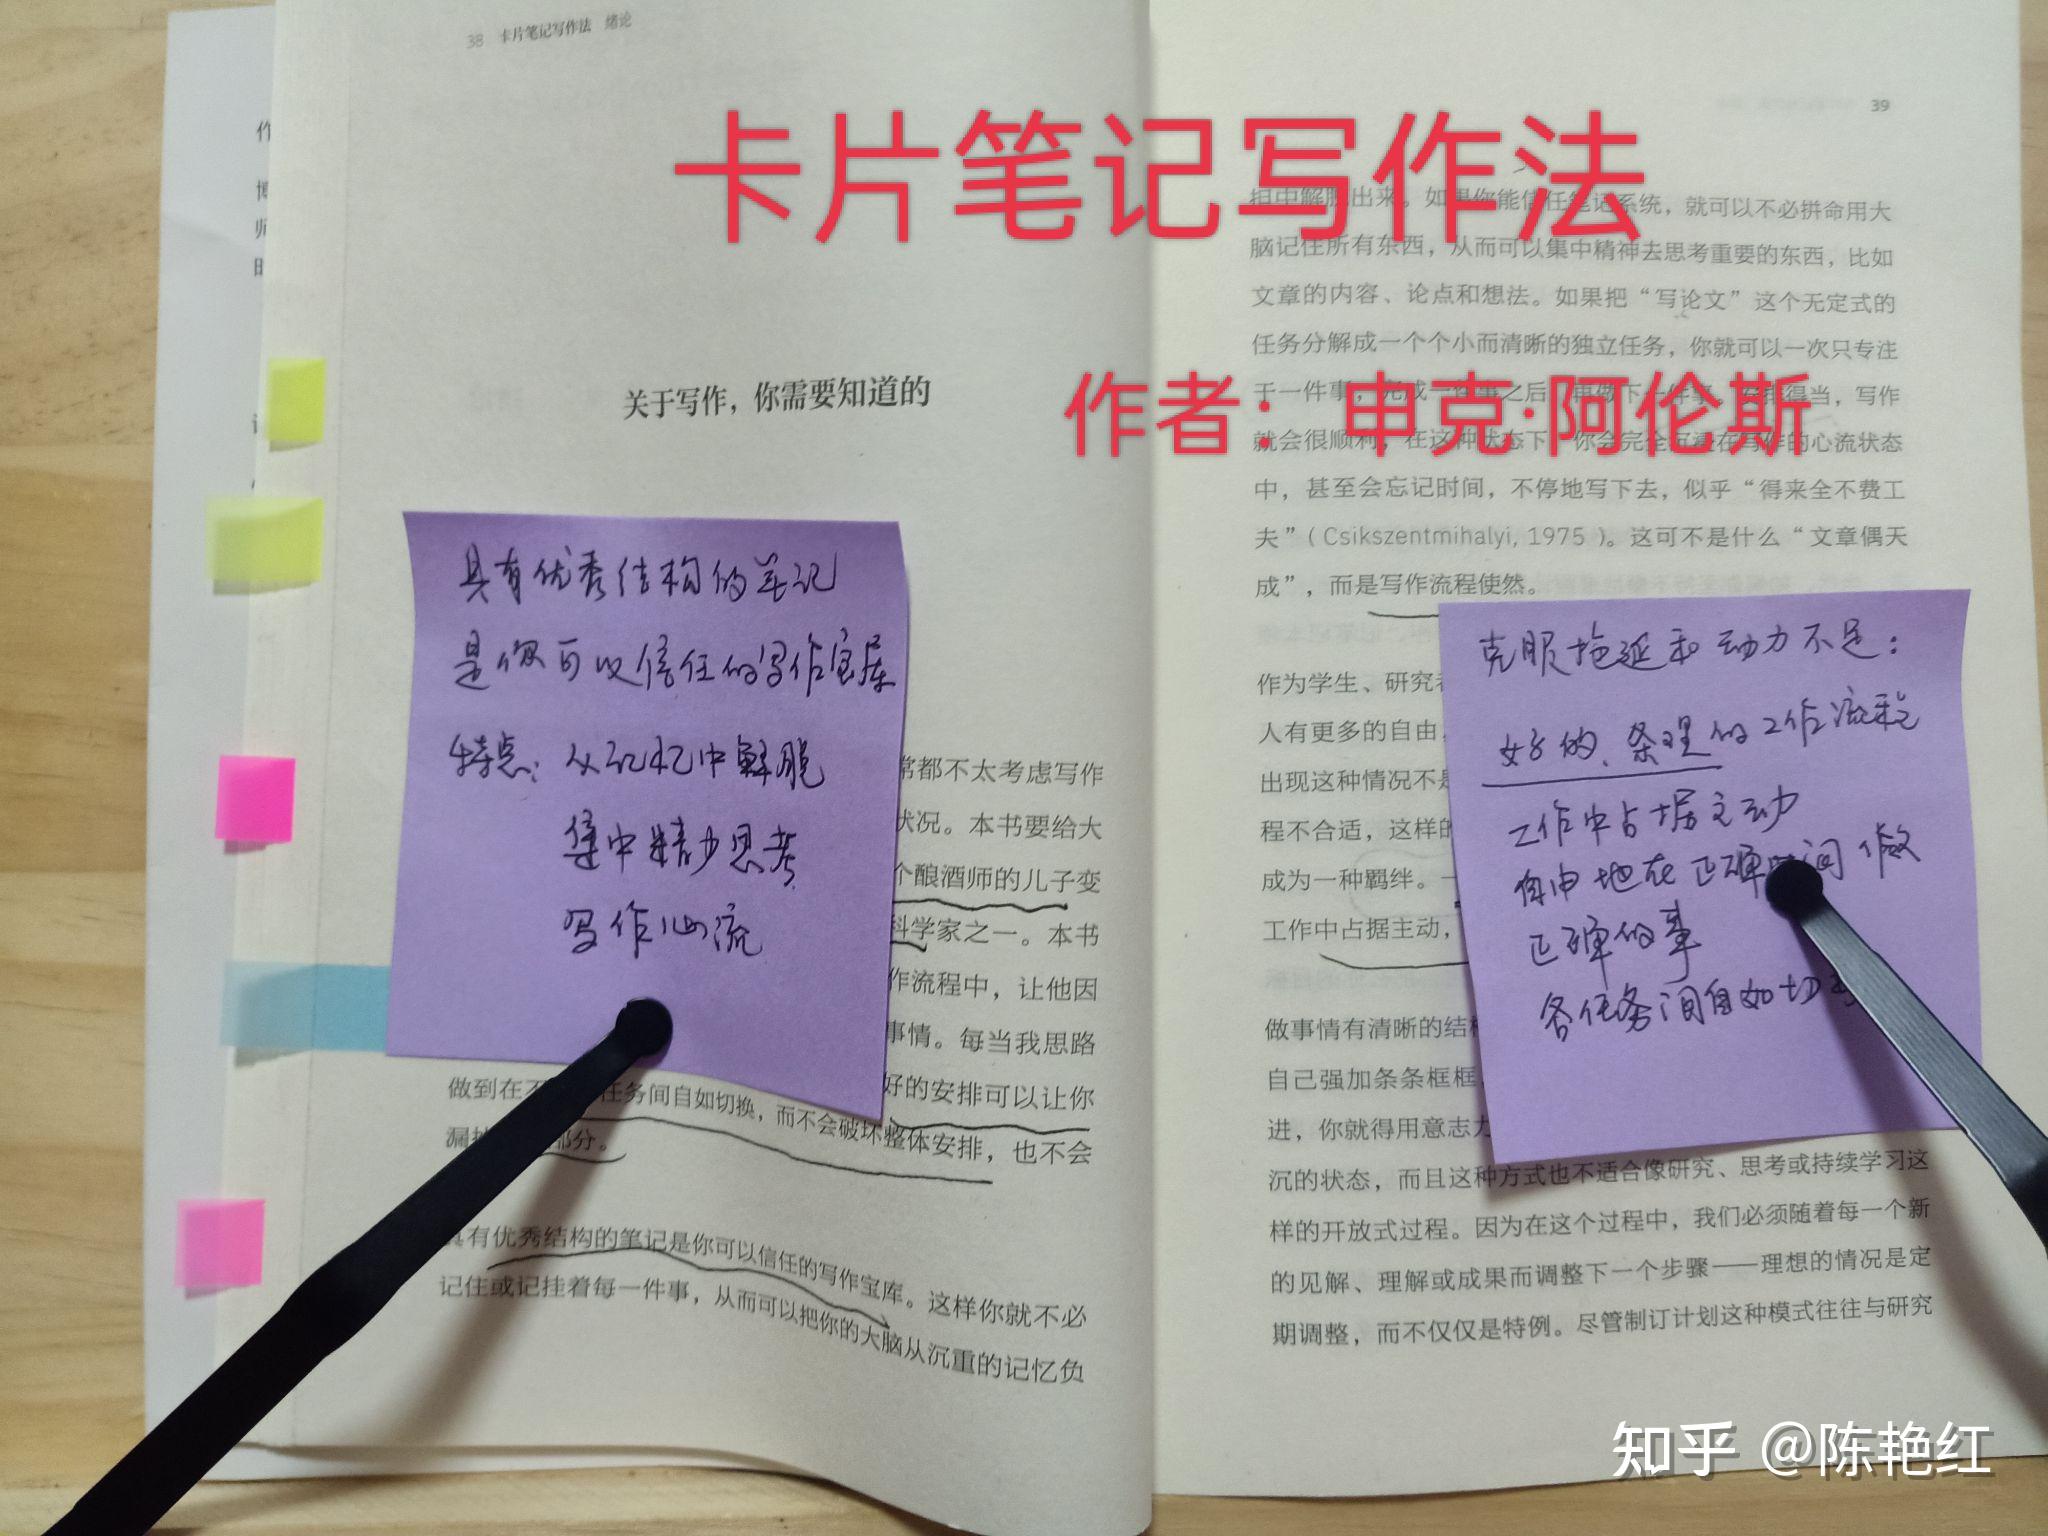 38 卡片笔记写作法 绪论
卡片笔记写作法
作者：申克·阿伦斯
关于写作，你需要知道的
具有优秀结构的笔记
是你可以信任的写作宝库
特点：从记忆中解脱
集中精力思考
写作心流
常都不太考虑写作
状况。本书要给大
个酿酒师的儿子变
科学家之一。本书
作流程中，让他因
事情。每当我思路
做到在不 任务间自如切换，而不会破坏整体安排，也不会
好的安排可以让你
漏掉 部分。
具有优秀结构的笔记是你可以信任的写作宝库。这样你就不必
记住或记挂着每一件事，从而可以把你的大脑从沉重的记忆负
39
担中解脱出来。如果你能信任笔记系统，就可以不必拼命用大
脑记住所有东西，从而可以集中精神去思考重要的东西，比如
文章的内容、论点和想法。如果把“写论文”这个无定式的
任务分解成一个个小而清晰的独立任务，你就可以一次只专注
于一件事，完成一件事之后 再做下一件事 安排得当，写作
就会很顺利，在这种状态下，你会完全沉浸在写作的心流状态
中，甚至会忘记时间，不停地写下去，似乎“得来全不费工
夫”（Csikszentmihalyi, 1975）。这可不是什么“文章偶天
成”，而是写作流程使然。
克服拖延和动力不足：
好的、条理的工作流程
工作中占据主动
自由地在正确时间做
正确的事
各任务间自如切
作为学生、研究者
人有更多的自由，
出现这种情况不是
程不合适，这样的
成为一种羁绊。一
工作中占据主动，
做事情有清晰的结构
自己强加条条框框，
进，你就得用意志力
沉的状态，而且这种方式也不适合像研究、思考或持续学习这
样的开放式过程。因为在这个过程中，我们必须随着每一个新
的见解、理解或成果而调整下一个步骤——理想的情况是定
期调整，而不仅仅是特例。尽管制订计划这种模式往往与研究
知乎 @陈艳红